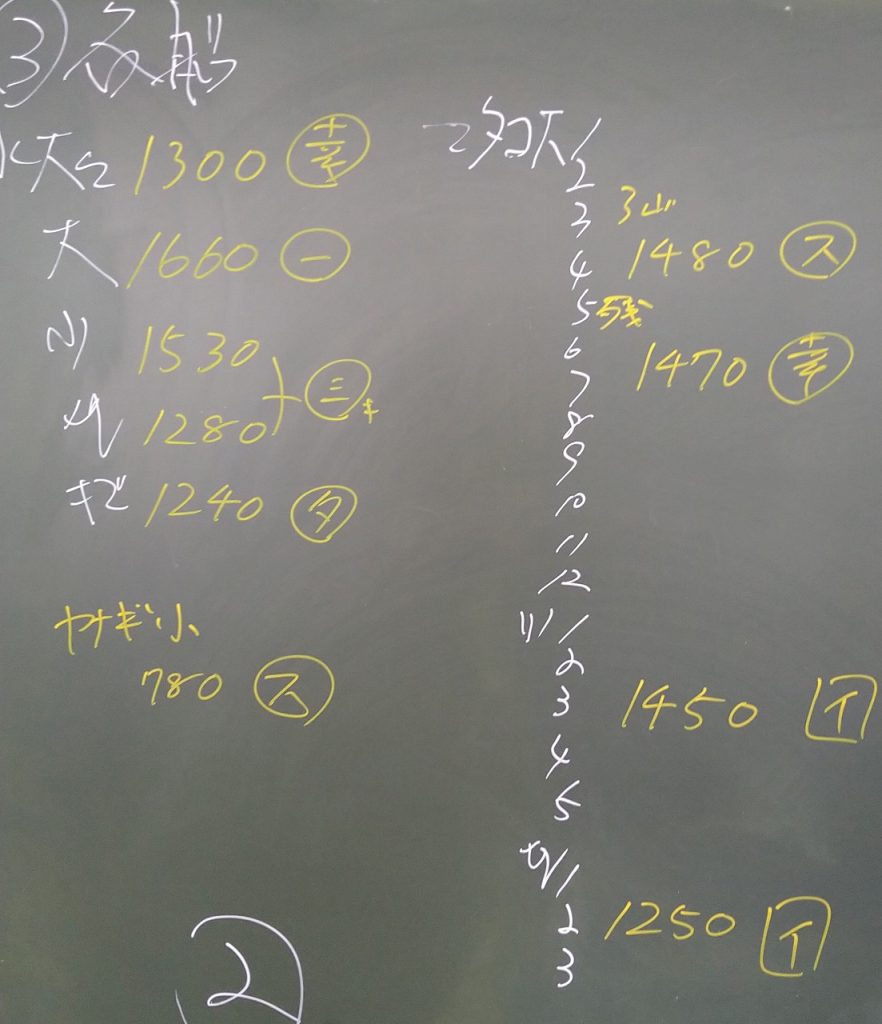 ③各船
水大2 1300 幸
大 1660 一
小 1530
1280 三キ
キズ 1240 タ
ヤナギ小
780 ス
②
マダコ大 1
2
3 3山
4 1480 ス
5 残
6
7 1470 幸
8
9
10
11
12
小 1
2
3 1450 イ
4
5
1
2 1250 イ
3